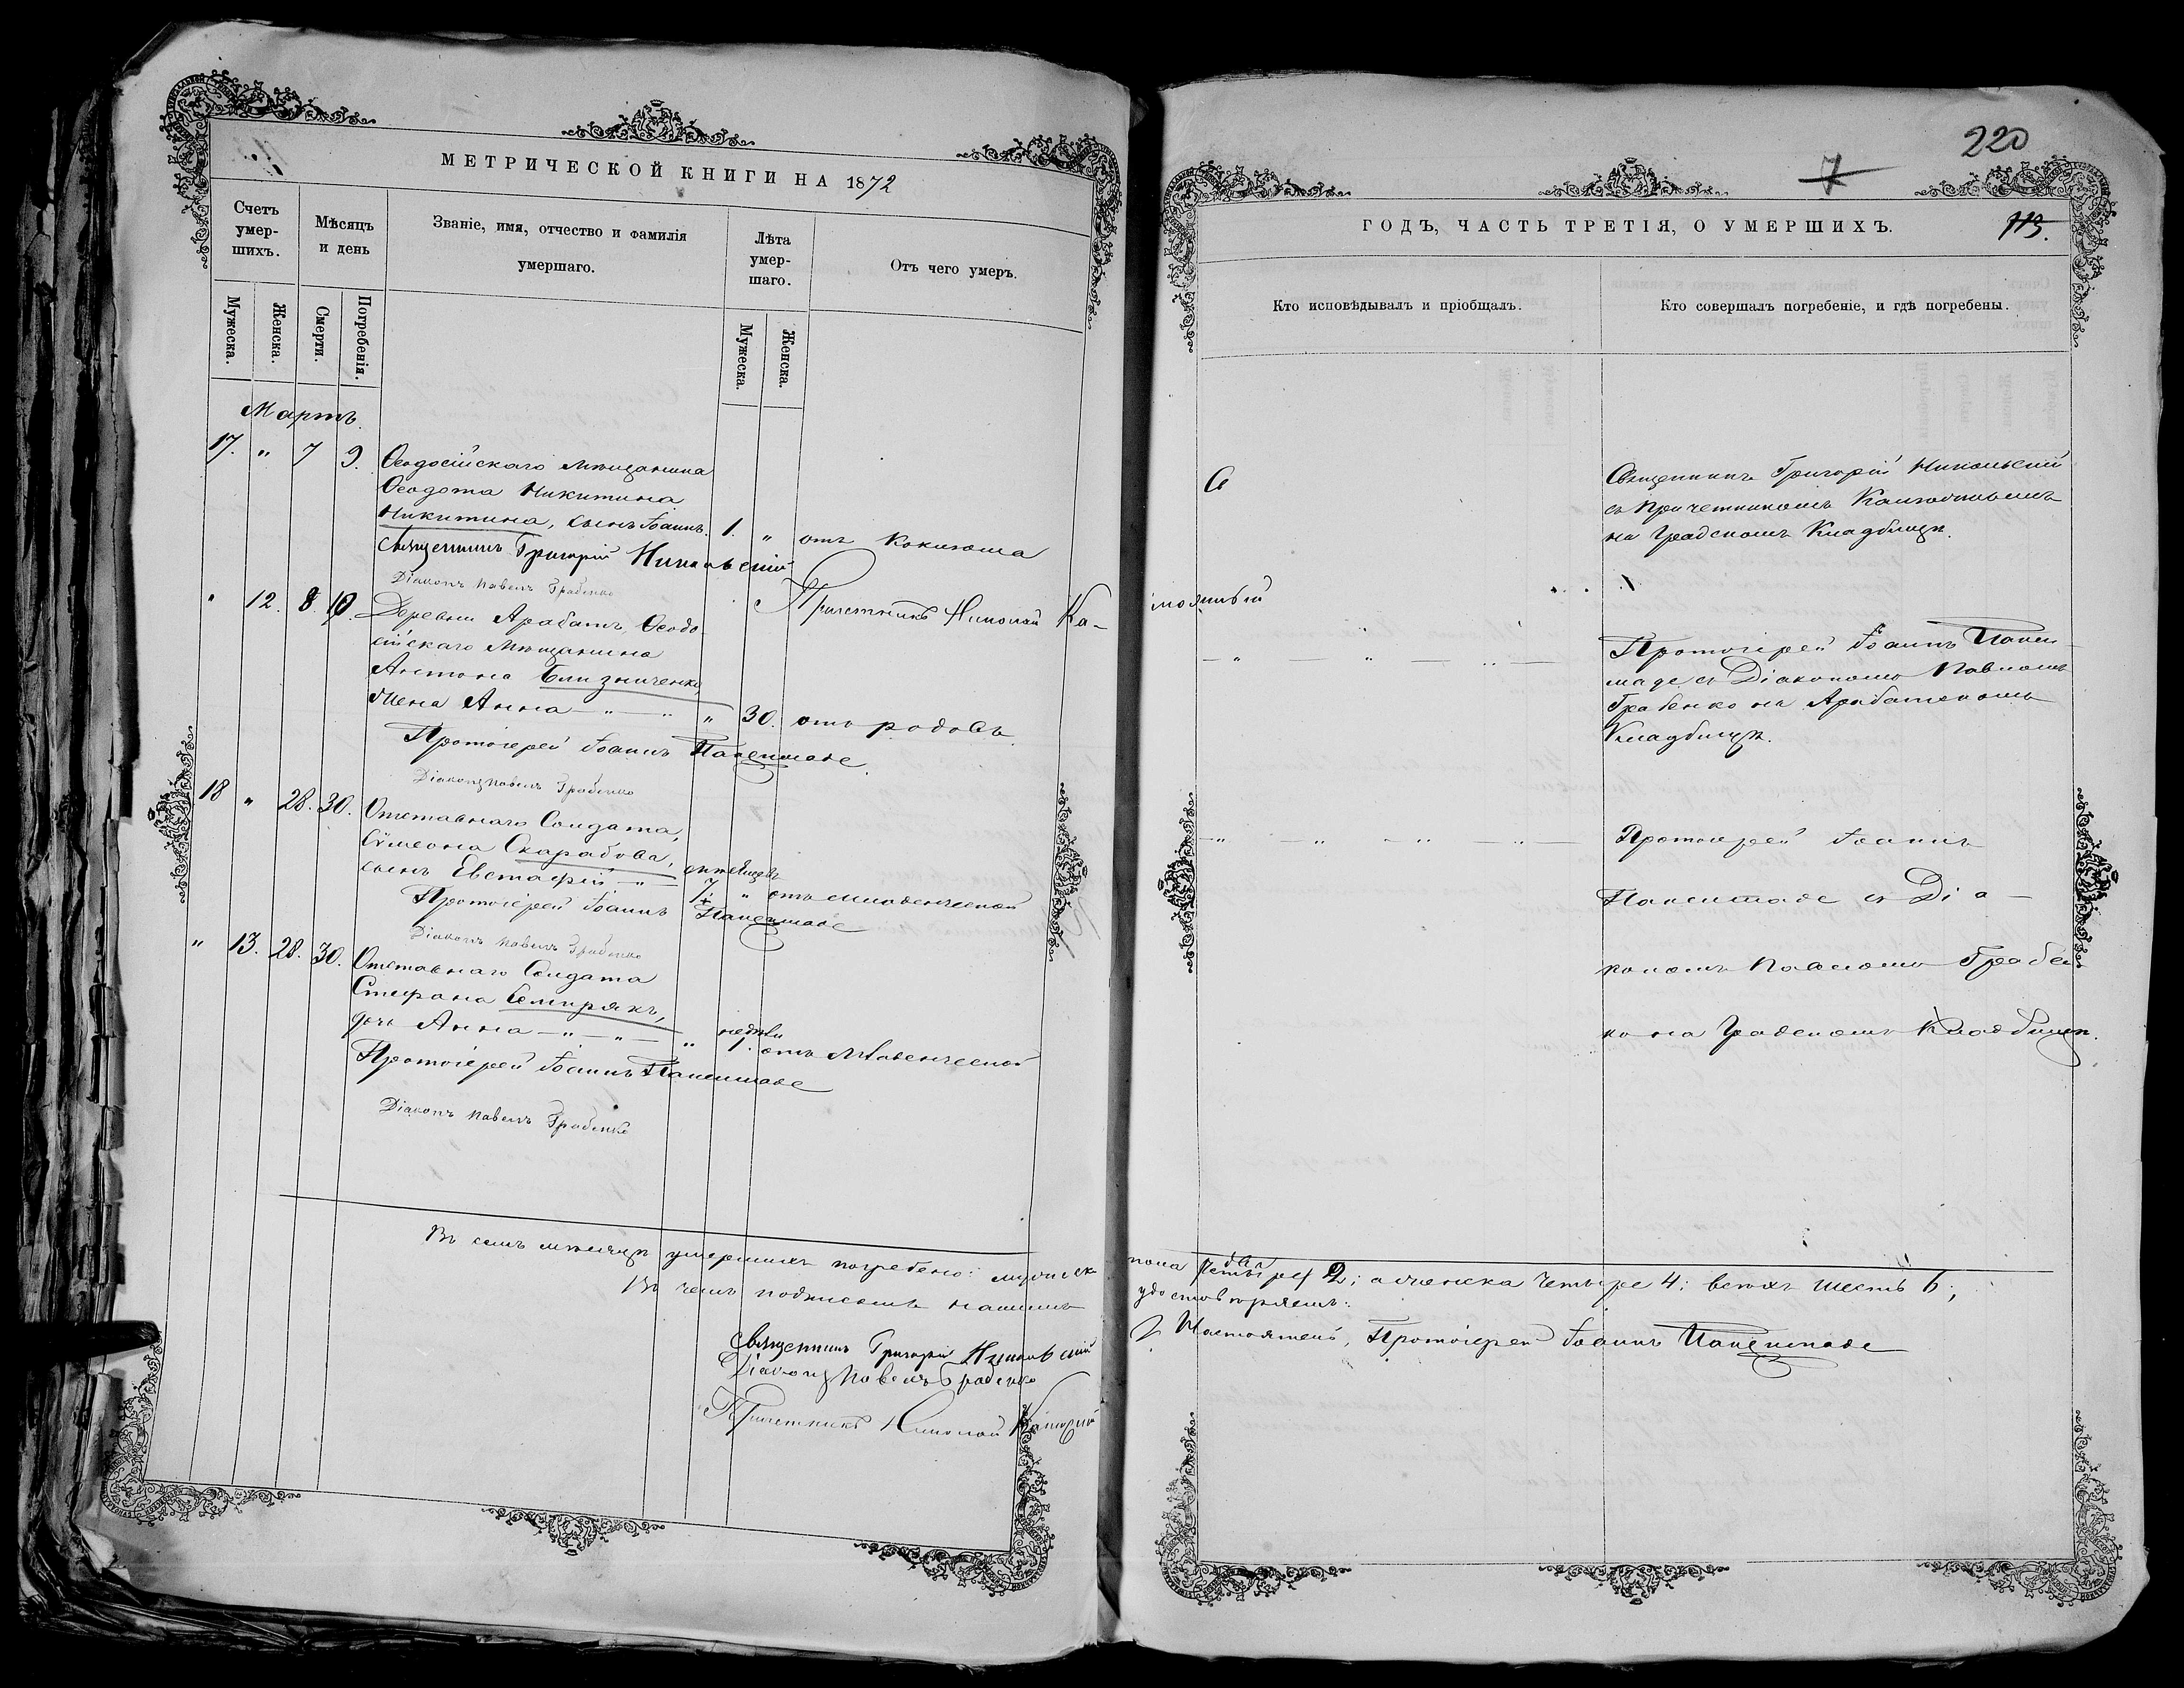 МЕТРИЧЕСКОЙ КНИГИ НА 1872
Счетъ умер-шихъ.
Мѣсяцъ и день
Званіе, имя, отчество и фамилія умершаго.
Лѣта умер-шаго.
Отъ чего умеръ.
Мужеска.
Женска.
Смерти.
Погребенія.
Мужеска.
Женска.
Мартъ.
17. " 7 9. Ѳеодосійскаго мѣщанина
Ѳеодота Никитина
Никитина, сынъ Іоаннъ. 1. " отъ коклюша
Священникъ Григорій Никольскій
Діаконъ Павелъ Грабенко
Причетникъ Николай Ка-
" 12. 8. 10. Деревни Арабатъ, Ѳеодо
сійскаго мѣщанина
Антона Близниченко,
жена Анна — " — " — " 30. отъ родовъ
Протоіерей Іоаннъ
Діаконъ Павелъ Грабенко
18 " 28. 30. Отставнаго Солдата,
Сѵмеона Скарабова,
сынъ Евстафій — " — 7. " отъ младенческой
Протоіерей Іоаннъ
Діаконъ Павелъ Грабенко
" 13. 28. 30. Отставнаго Солдата
Стефана
дочь Анна — " — " — " недѣли 1. отъ младенческой
Протоіерей Іоаннъ
Діаконъ Павелъ Грабенко
Въ семъ мѣсяцѣ умершихъ погребено: мужеск
Въ чемъ подписомъ нашимъ
Священникъ Григорій Никольскій
Діаконъ Павелъ Грабенко
Причетникъ Николай
220
7
113.
ГОДЪ, ЧАСТЬ ТРЕТІЯ, О УМЕРШИХЪ.
Кто исповѣдывалъ и пріобщалъ.
Кто совершалъ погребеніе, и гдѣ погребены.
Священникъ Григорій Никольскій
съ Причетникомъ
на Градскомъ Кладбищѣ.
Протоіерей Іоаннъ
съ Діакономъ Павломъ
Грабенко на Арабатскомъ
Кладбищѣ.
Протоіерей Іоаннъ
съ Діа-
кономъ Павломъ Грабен
ко на Градскомъ Кладбищѣ.
пола два 2; а женска четыре 4: всѣхъ шесть 6;
удостовѣряемъ:
Настоятель, Протоіерей Іоаннъ